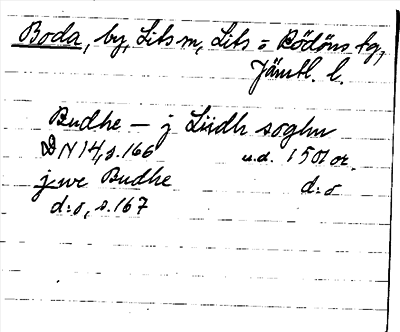 Boda, by, Lits sn, Lits o Rödöns tg,
Jämtl. l.
Budhe – j Liidh soghn
DN 14, s. 166 u.d. 1501 or.
j we Budhe d:o
d:o, s. 167